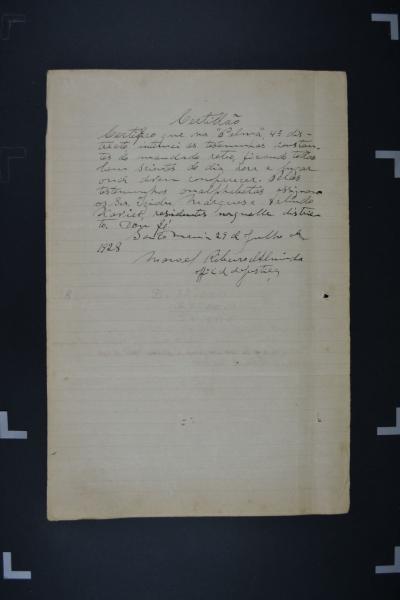 Certidão
Certifico que na "Palma" 4º dis-
tricto intimei as testemunhas constan-
tes do mandado retro, ficando todas
bem scientes do dia hora e lugar
onde devem comparecer. Pelas
testemunhas analphabetas assignam
os Srs. Izidro Marques e
Xavier, residentes naquelle distric-
to. Dou fé
Santa Maria 29 de Julho de
1928
Manoel Ribeiro d'Almeida
offal de justiça